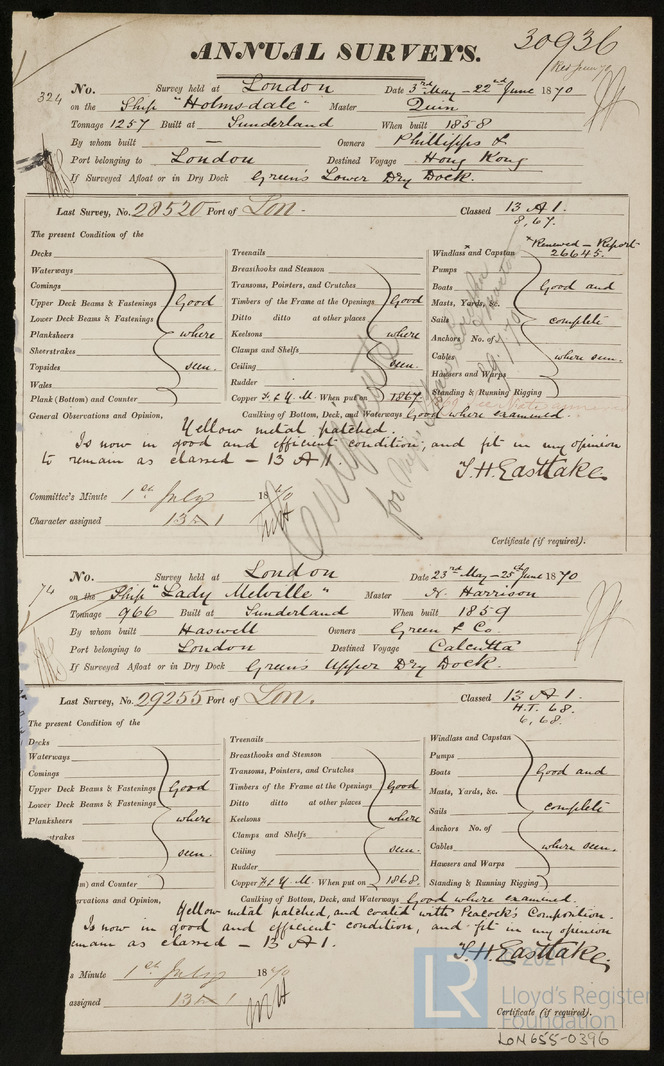 ANNUAL SURVEYS.
30936
324
No. Survey held at London Date 3rd May - 22nd June 1870
on the Ship "Holmsdale" Master Quin
Tonnage 1257 Built at Sunderland When built 1858
By whom built — Owners Phillipps &
Port belonging to London Destined Voyage Hong Kong
If Surveyed Afloat or in Dry Dock Green's Lower Dry Dock.
Last Survey, No. 28520 Port of Lon. Classed 13 A 1.
8, 67.
The present Condition of the
Renewed - Report
26645.
Decks
Waterways
Comings
Upper Deck Beams & Fastenings
Lower Deck Beams & Fastenings
Planksheers
Sheerstrakes
Topsides
Wales
Plank (Bottom) and Counter
Good
where
seen.
Treenails
Breasthooks and Stemson
Transoms, Pointers, and Crutches
Timbers of the Frame at the Openings
Ditto ditto at other places
Keelsons
Clamps and Shelfs
Ceiling
Rudder
Copper F. & Y. M. When put on 1867
Good
where
seen.
Windlass x and Capstan
Pumps
Boats
Masts, Yards, &c.
Sails
Anchors No. of
Cables
Hawsers and Warps
Standing & Running Rigging
Good and
complete
where seen.
General Observations and Opinion, Caulking of Bottom, Deck, and Waterways Good where examined.
Yellow metal patched.
Is now in good and efficient condition, and fit in my opinion
to remain as classed - 13 A 1.
T. H. Eastlake
Committee's Minute 1st July 1870
Character assigned 13 A 1
Certificate (if required).
74
No. Survey held at London Date 23rd May - 25th June 1870
on the Ship "Lady Melville" Master H. Harrison
Tonnage 966 Built at Sunderland When built 1859
By whom built Haswell Owners Green & Co.
Port belonging to London Destined Voyage Calcutta
If Surveyed Afloat or in Dry Dock Green's Upper Dry Dock.
Last Survey, No. 29255 Port of Lon. Classed 13 A 1.
H.T. 68.
6, 68.
The present Condition of the
Decks
Waterways
Comings
Upper Deck Beams & Fastenings
Lower Deck Beams & Fastenings
Planksheers
trakes
m) and Counter
Good
where
seen.
Treenails
Breasthooks and Stemson
Transoms, Pointers, and Crutches
Timbers of the Frame at the Openings
Ditto ditto at other places
Keelsons
Clamps and Shelfs
Ceiling
Rudder
Copper F. & Y. M. When put on 1868.
Good
where
seen.
Windlass and Capstan
Pumps
Boats
Masts, Yards, &c.
Sails
Anchors No. of
Cables
Hawsers and Warps
Standing & Running Rigging
Good and
complete
where seen.
rvations and Opinion, Caulking of Bottom, Deck, and Waterways Good where examined.
Yellow metal patched, and coated with Peacock's Composition.
Is now in good and efficient condition, and fit in my opinion
emain as classed - 13 A 1.
T. H. Eastlake.
s Minute 1st July 1870
assigned 13 A 1
Certificate (if required).
© 2021
LR
Lloyd's Register
Foundation
LON655-0396